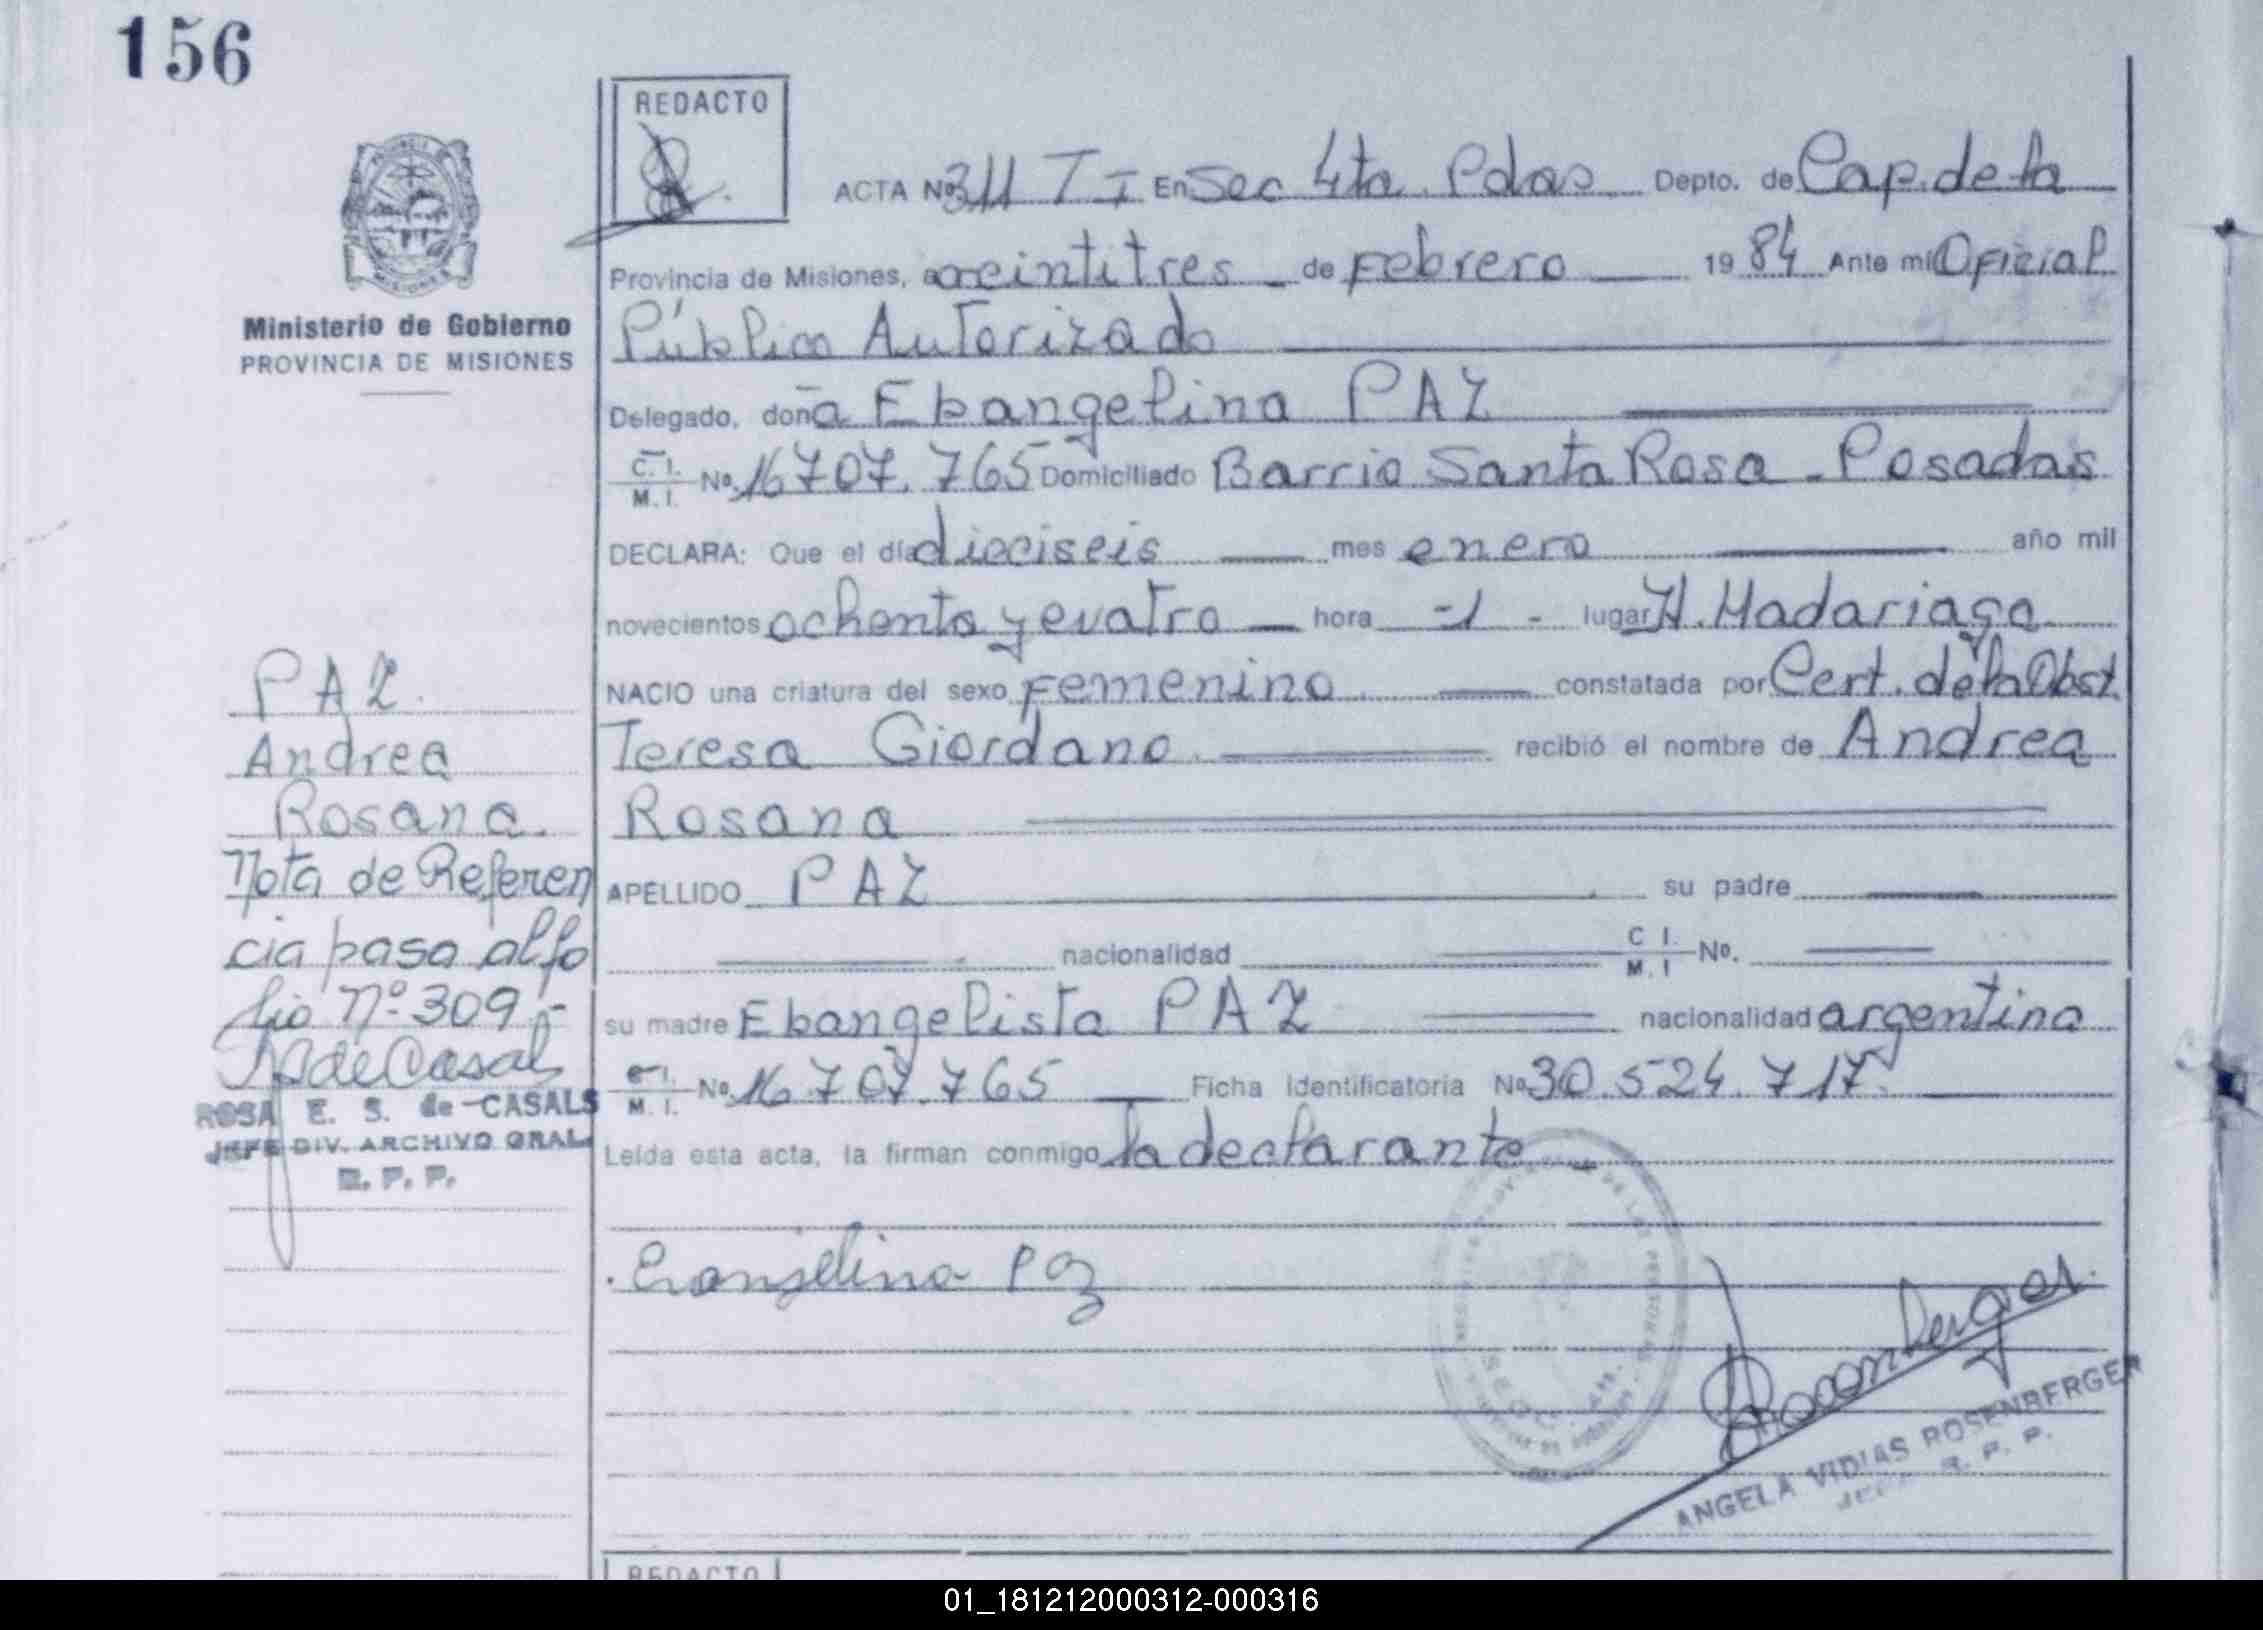 156
REDACTO
ACTA Nº 311 T I En Sec 4ta. Pdas. Depto. de Cap. de la
Provincia de Misiones, a veintitres de Febrero 1984 Ante mi Oficial
Público Autorizado
Ministerio de Gobierno
PROVINCIA DE MISIONES
Delegado, doña Ebangelina PAZ
C. I. M. I. Nº. 16.707.765 Domiciliado Barrio Santa Rosa - Posadas
DECLARA: Que el día dieciseis mes enero año mil
novecientos ochenta y cuatro hora -1- lugar H. Madariaga
NACIO una criatura del sexo Femenino constatada por Cert. de la Obst.
Teresa Giordano recibió el nombre de Andrea
Rosana
APELLIDO PAZ su padre
nacionalidad C I. M. I Nº.
su madre Ebangelista PAZ nacionalidad argentina
C. I. M. I. Nº 16.707.765 Ficha Identificatoria Nº 30.524.717
Leída esta acta, la firman conmigo la declarante
PAZ.
Andrea
Rosana.
Nota de Referen
cia pasa al fo
lio Nº 309.-
de Casals
ROSA E. S. de CASALS
JEFE DIV. ARCHIVO GRAL.
R. P. P.
Evangelina Paz
Rosenberger
ANGELA VIDIAS ROSENBERGER
R. P. P.
REDACTO
01_181212000312-000316